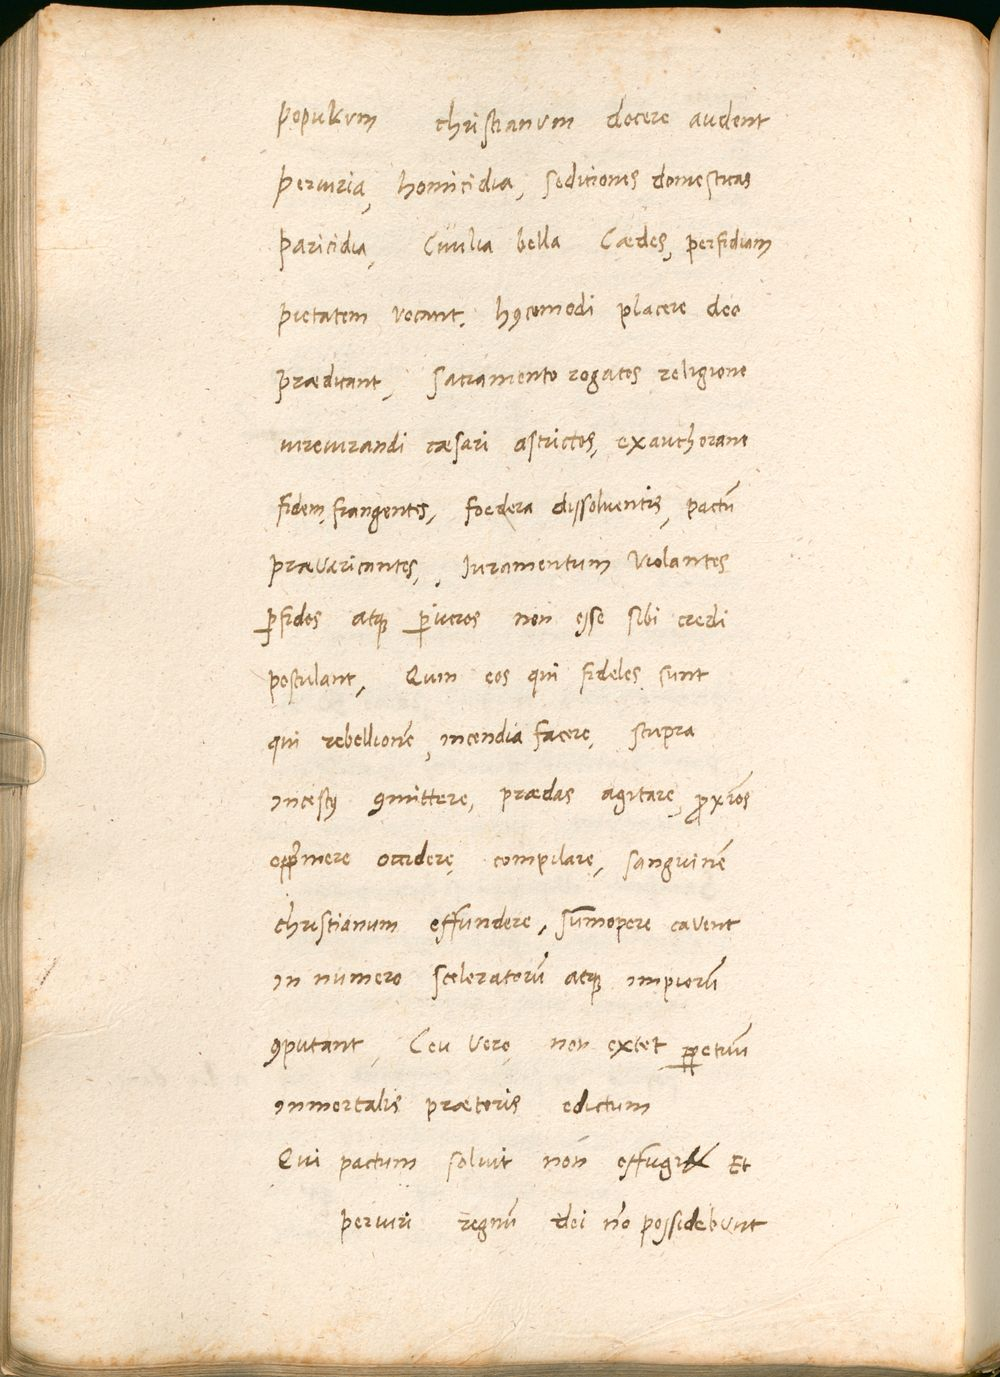 populum christianum docere audent
periuria, homicidia, seditiones domesticas
paricidia, Civilia bella Cædes, perfidiam
pietatem vocant. hꝯcemodi placere deo
prædicant, sacramento rogatos religione
iureiurandi cæsari astrictos, exauthorant
fidem frangentes, foedera dissoluentis, pactū
prævaricantes, Iuramentum Violantes
ꝑfidos atqꝫ ꝑiuros non esse sibi credi
postulant, Qum eos qui fideles sunt
qui rebellionē, incendia facere, stupra
incestꝰ ꝯmittere, prædas agitare, ꝓxīos
opp̄mere occidere, compilare, sanguinē
christianum effundere, sūmopere cavent
in numero sceleratorū atqꝫ impiorū
ꝯputant, Ceu Vero, non extet ꝑpetuū
inmortalis prætoris edictum
Qui pactum soluit non effugiet Et
periuri regnū dei nō possidebunt